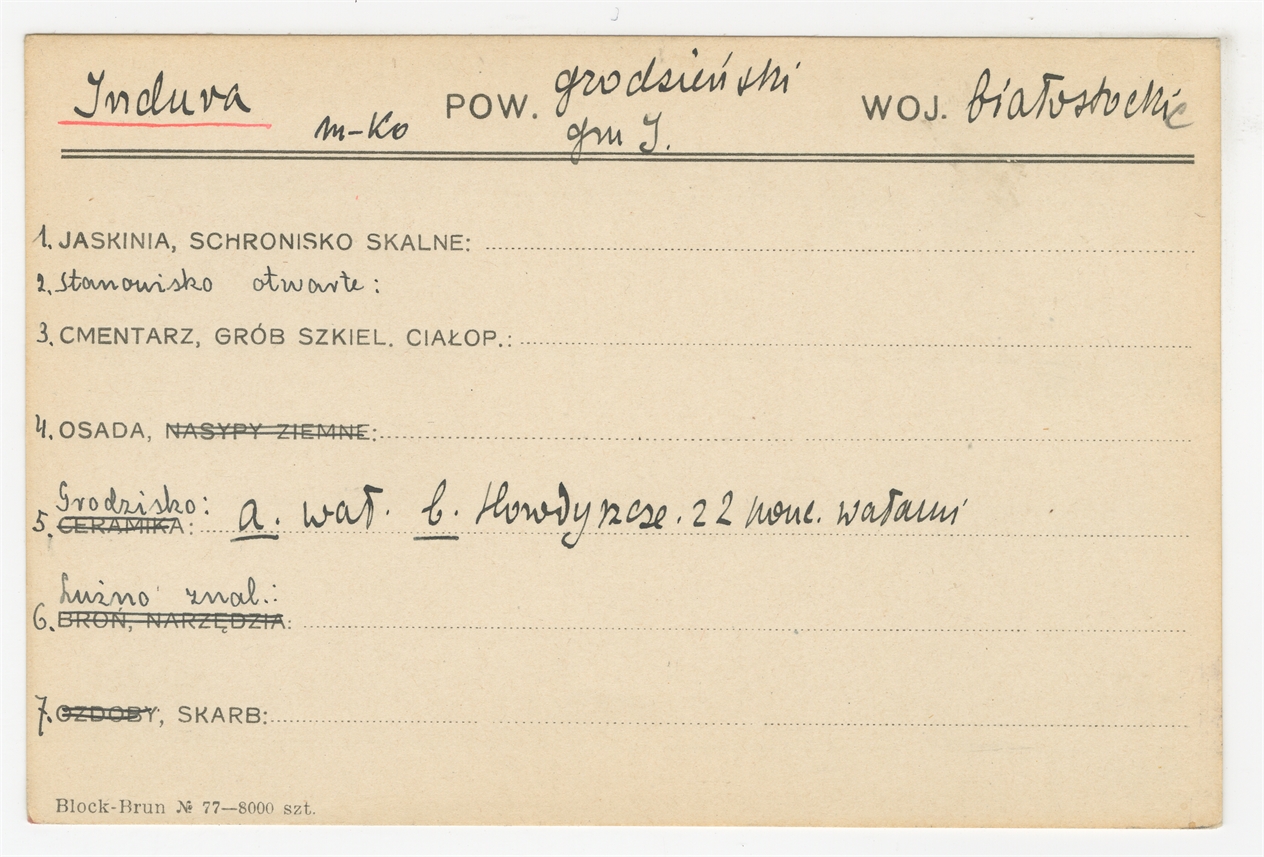 Indura m-ko POW. grodzieński WOJ. białostockie
gm I.
1. JASKINIA, SCHRONISKO SKALNE:
2. Stanowisko otwarte:
3. CMENTARZ, GRÓB SZKIEL. CIAŁOP.:
4. OSADA, NASYPY ZIEMNE:
Grodzisko:
5. CERAMIKA: a. wał. b. Howdyszcze. z 2 konc. wałami
Luźno znal.:
6. BROŃ, NARZĘDZIA:
7. OZDOBY, SKARB:
Block-Brun № 77—8000 szt.